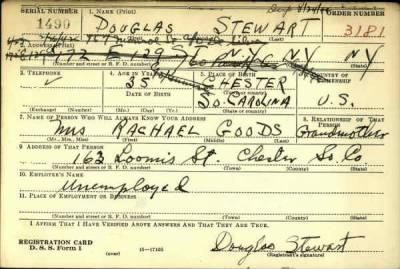 SERIAL NUMBER
1. NAME (Print)
ORDER NUMBER
1490
DOUGLAS STEWART
3181
2. ADDRESS (Print)
172 E 129 ST NY NY NY
(Number and street or R. F. D. number) (Town) (County) (State)
3. TELEPHONE
4. AGE IN YEARS
5. PLACE OF BIRTH
6. COUNTRY OF CITIZENSHIP
35
CHESTER
DATE OF BIRTH
So. CAROLINA
U.S.
(Exchange) (Number) (Mo.) (Day) (Yr.) (State or country)
7. NAME OF PERSON WHO WILL ALWAYS KNOW YOUR ADDRESS
8. RELATIONSHIP OF THAT PERSON
Mrs RACHAEL GOODS Grandmother
(Mr., Mrs., Miss) (First) (Middle) (Last)
9. ADDRESS OF THAT PERSON
163 Loomis St. Chester So. Co.
(Number and street or R. F. D. number) (Town) (County) (State)
10. EMPLOYER'S NAME
Unemployed
11. PLACE OF EMPLOYMENT OR BUSINESS
(Number and street or R. F. D. number) (Town) (County) (State)
I AFFIRM THAT I HAVE VERIFIED ABOVE ANSWERS AND THAT THEY ARE TRUE.
REGISTRATION CARD
D. S. S. Form 1
(over)
16—17105
Douglas Stewart
(Registrant's signature)